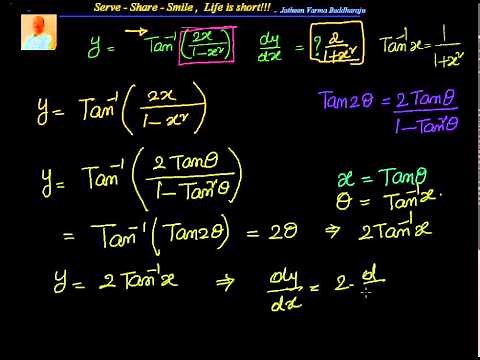 Serve - Share - Smile , Life is short!!! - Jatheen Varma Buddharaju
y = → Tan⁻¹(2x/1-x²) dy/dx = ? 2/1+x² Tan⁻¹x = 1/1+x²
y = Tan⁻¹(2x/1-x²) Tan2θ = 2Tanθ/1-Tan²θ
y = Tan⁻¹(2Tanθ/1-Tan²θ) x = Tanθ
θ = Tan⁻¹x.
= Tan⁻¹(Tan2θ) = 2θ ⇒ 2Tan⁻¹x
y = 2Tan⁻¹x ⇒ dy/dx = 2. d/